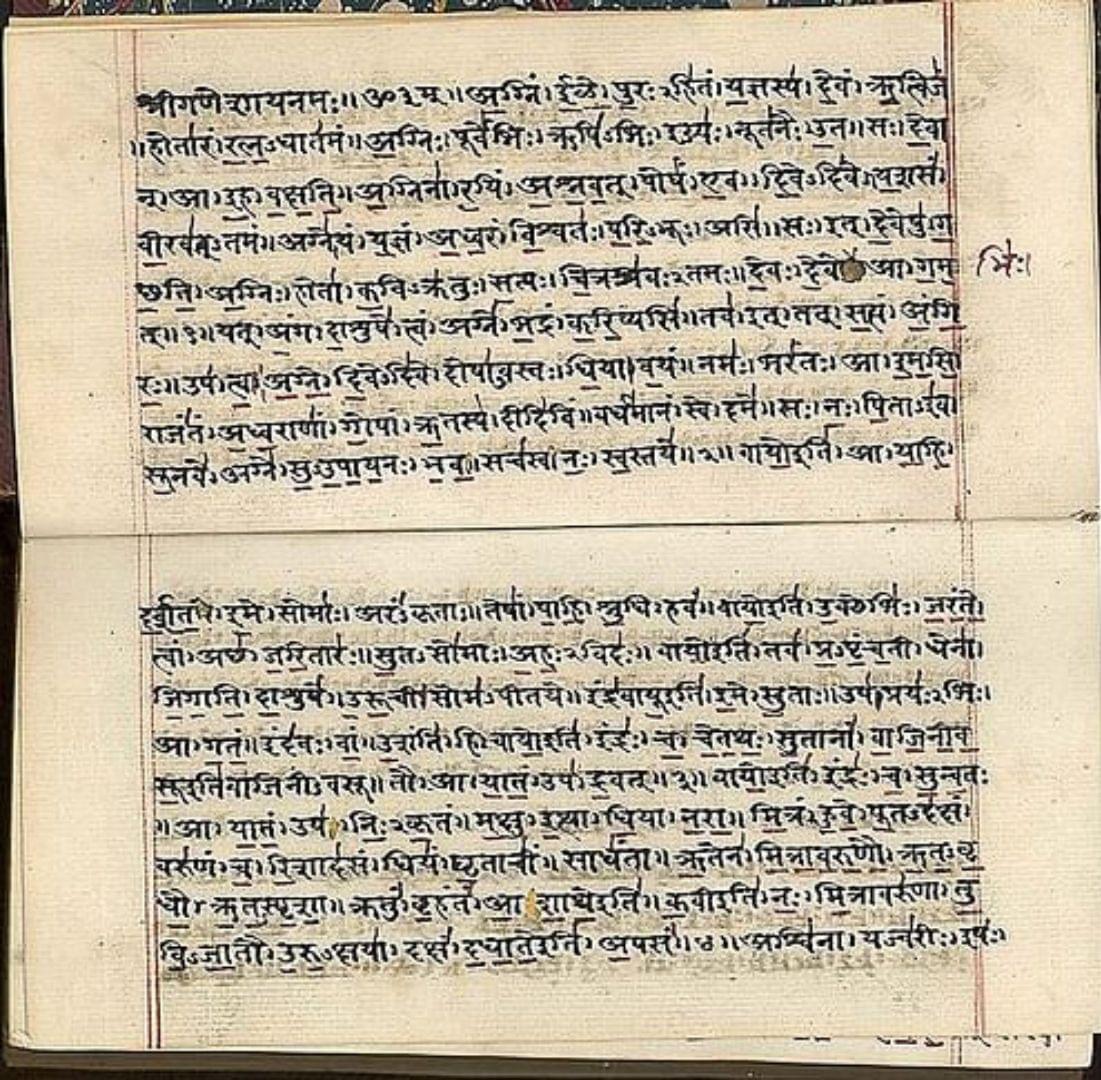 श्रीगणेशायनमः॥ ॐ३म्॥ अग्निं। ईळे। पुरःऽहितं। यज्ञस्य। देवं। ऋत्विजं
॥होतारं। रत्नऽधातमं॥ अग्निः। पूर्वेभिः। ऋषिऽभिः। ईड्यः। नूतनैः। उत॥ सः। देवा
न्। आ। इह। वक्षति॥ अग्निना। रयिं। अश्नवत्। पोषं। एव। दिवेऽदिवे। यशसं
वीरवत्ऽतमं॥ अग्ने। यं। यज्ञं। अध्वरं। विश्वतः। परिऽभूः। असि॥ सः। इत्। देवेषु। ग
छति। अग्निः। होता। कविऽक्रतुः। सत्यः। चित्रश्रवःऽतमः॥ देवः। देवे आ। गम
भिः।
त्॥१॥ यत्। अंग। दाशुषे। त्वं। अग्ने। भद्रं। करिष्यसि॥ तव। इत्। तत्। सत्यं। अंगि
रः॥ उप। त्वा। अग्ने। दिवेऽदिवे। दोषाऽवस्तः। धिया। वयं॥ नमः। भरंतः। आ। इमसि
राजंतं। अध्वराणां। गोपां। ऋतस्य। दीदिविं॥ वर्धमानं। स्वे। दमे॥ सः। नः। पिताऽइव।
सूनवे। अग्ने। सुऽउपायनः। भव॥ सचस्व। नः। स्वस्तये॥२॥ वायोइति। आ। याहि।
दर्शत। इमे। सोमाः। अरंऽकृताः॥ तेषां। पाहि। श्रुधि। हवं॥ वायोइति। उक्थेभिः। जरंते
त्वां। अछ। जरितारः॥ सुतऽसोमाः। अहःऽविदः॥ वायोइति। तव। प्रऽपृंचती। धेना।
जिगाति। दाशुषे॥ उरूची। सोमऽपीतये॥ इंद्रवायूइति। इमे। सुताः॥ उप। प्रयःऽभिः।
आ। गतं॥ इंदवः। वां। उशंति। हि। वायोइति। इंद्रः। च। चेतथः। सुतानां। वाजिनीव
सूइतिवाजिनीऽवसू॥ तौ। आ। यातं। उप। द्रवत्॥३॥ वायोइति। इंद्रः। च। सुन्वतः
॥ आ। यातं। उप। निःऽकृतं॥ मक्षु। इत्था। धिया। नरा॥ मित्रं। हुवे। पूतऽदक्षं।
वरुणं। च। रिशादसं॥ धियं। घृताचीं। साधंता॥ ऋतेन। मित्रावरुणौ। ऋतऽवृ
धौ। ऋतऽस्पृशा॥ क्रतुं। बृहंतं। आशाथेइति॥ कवीइति। नः। मित्रावरुणा। तु
विऽजातौ। उरुऽक्षया। दक्षं। दधातेइति। अपसं॥४॥ अश्विना। यज्वरीः। इषः।